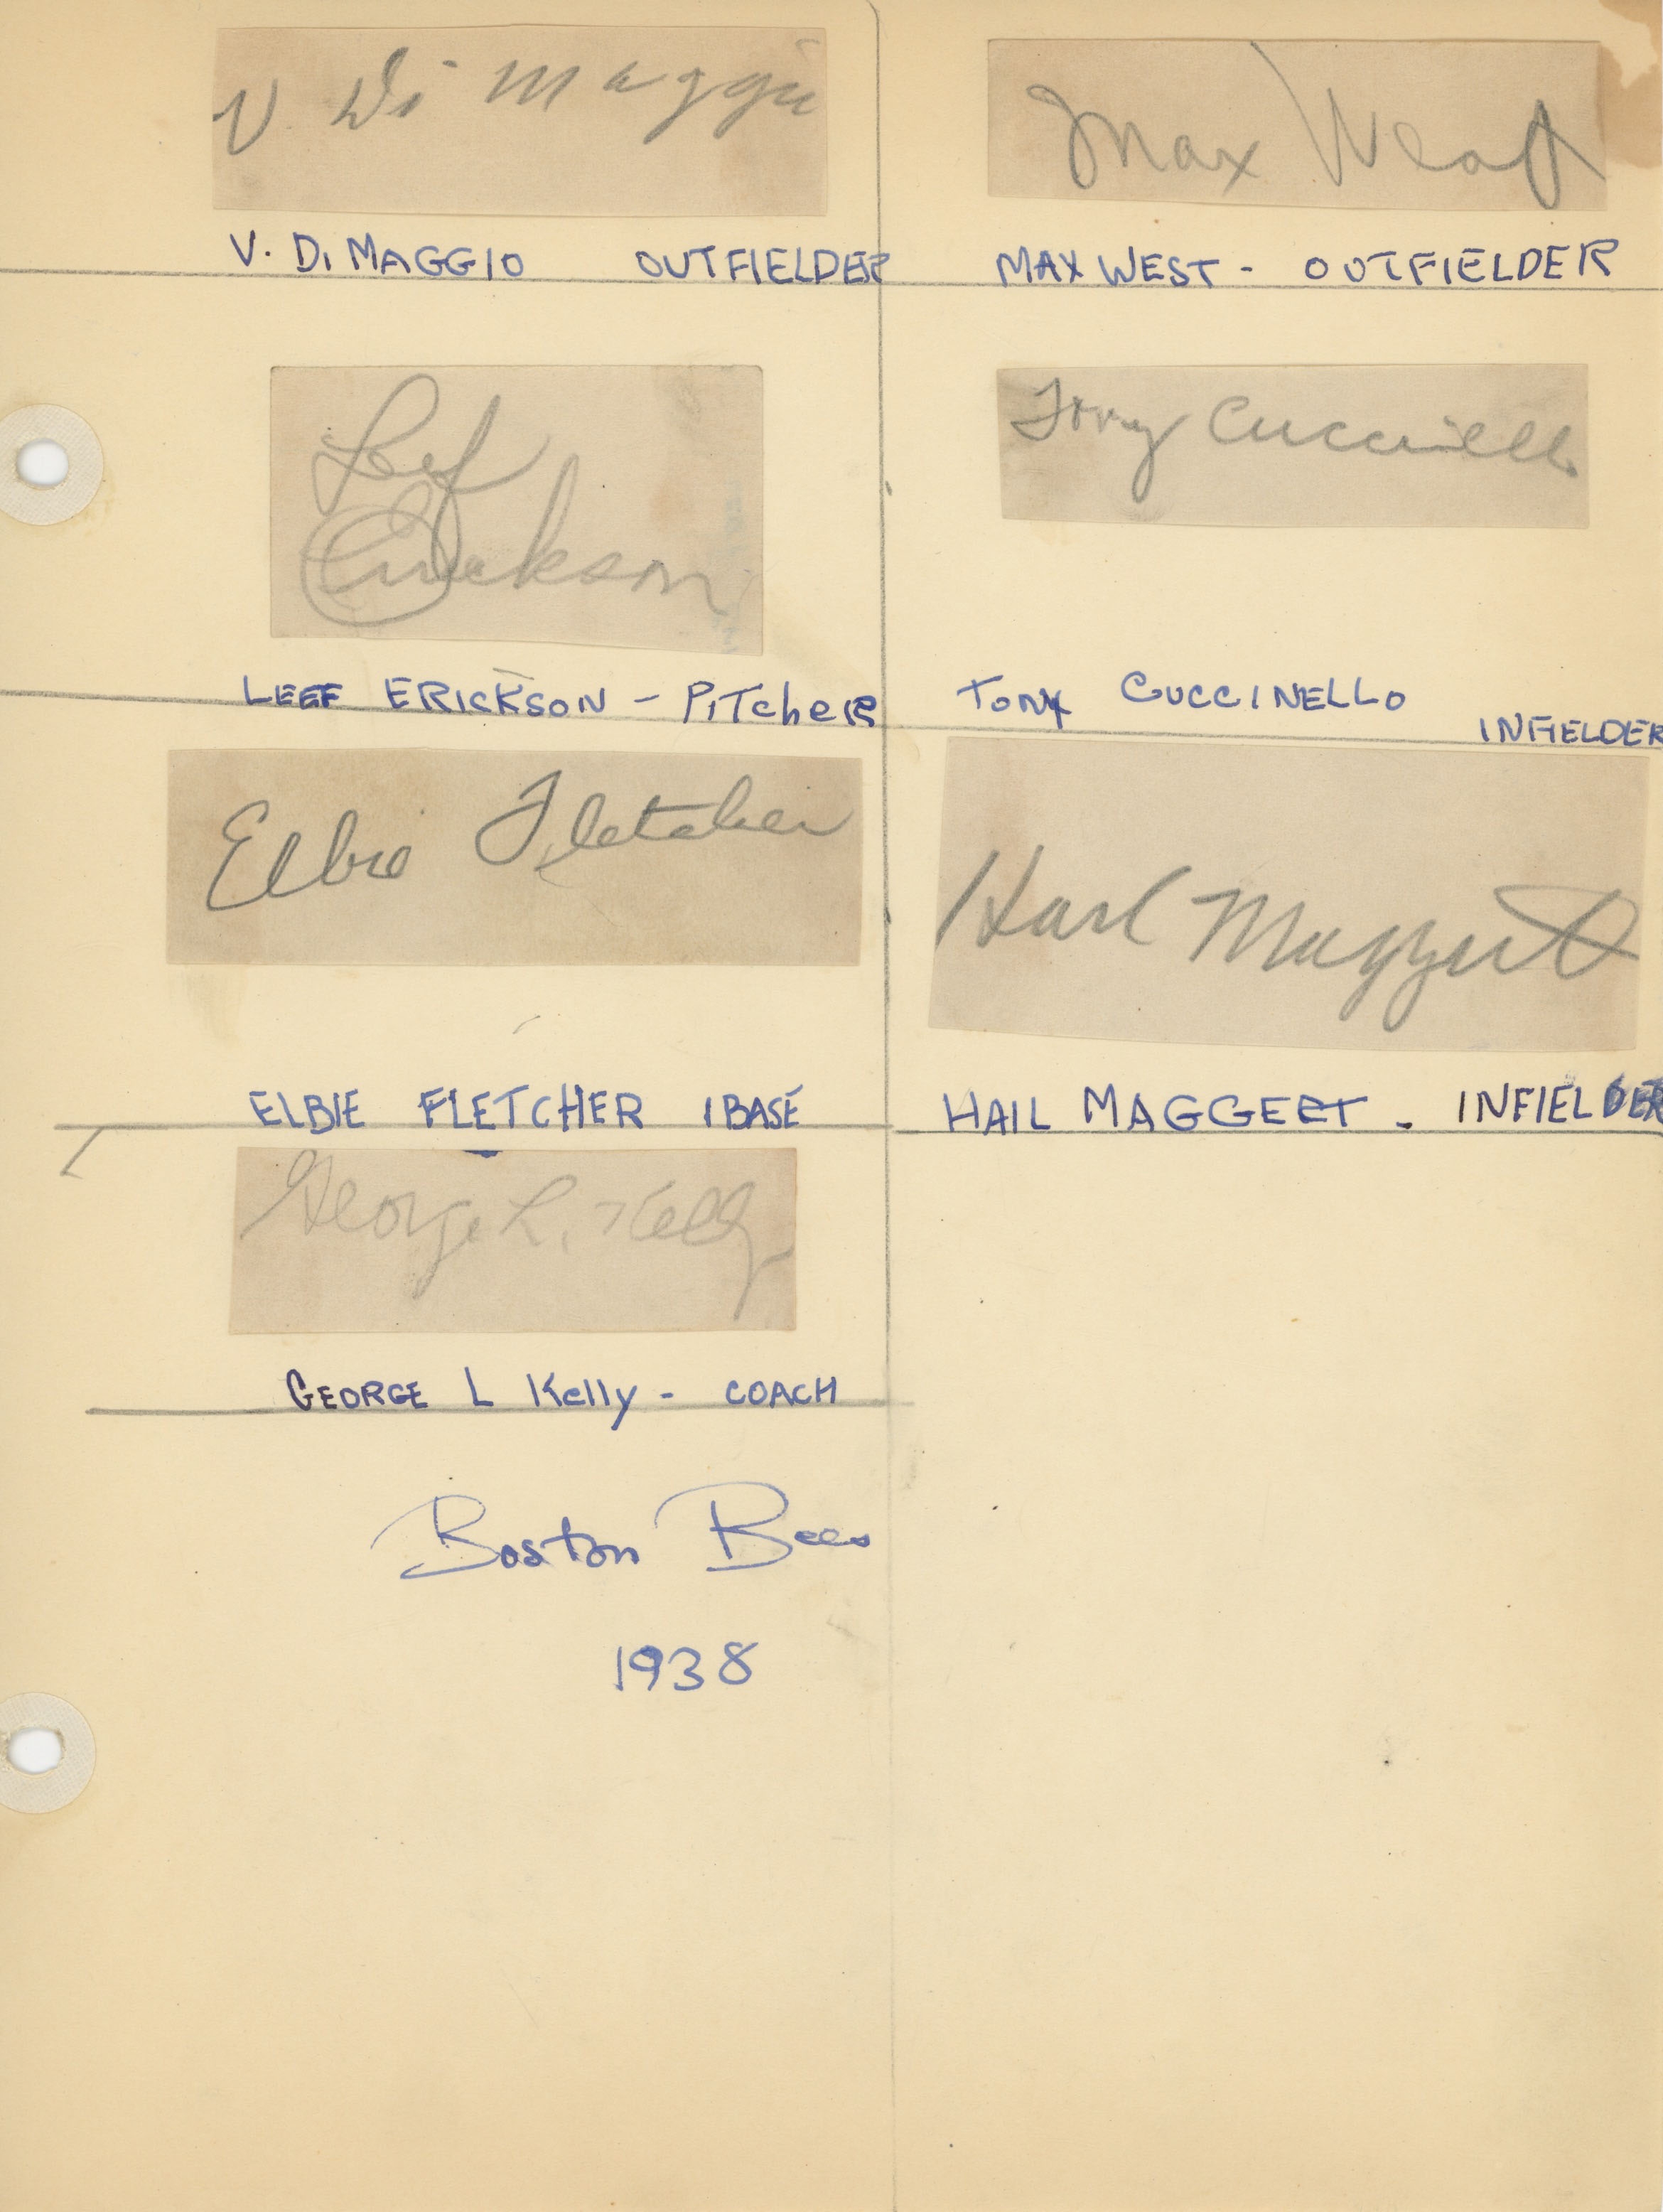 V Di Maggio
V. DiMAGGIO OUTFIELDER
Max West
MAX WEST - OUTFIELDER
Leif
Erickson
LEEF ERICKSON - PITcheR
Tony Cuccinello
TONY CUCCINELLO
INFIELDER
Elbie Fletcher
ELBIE FLETCHER 1BASE
Harl Maggert
HAIL MAGGERT - INFIELDER
George L. Kelly
GEORGE L Kelly - COACH
Boston Bees
1938